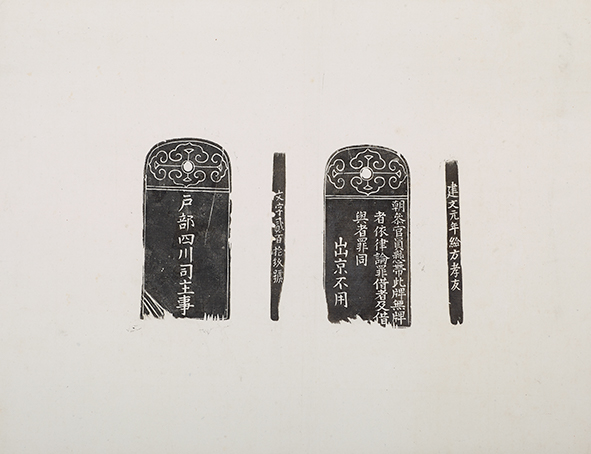 戶部四川司主事
文字貳百拾玖號
朝叅官員懸帶此牌無牌
者依律論罪借者及借
與者罪同
出京不用
建文元年給方孝友